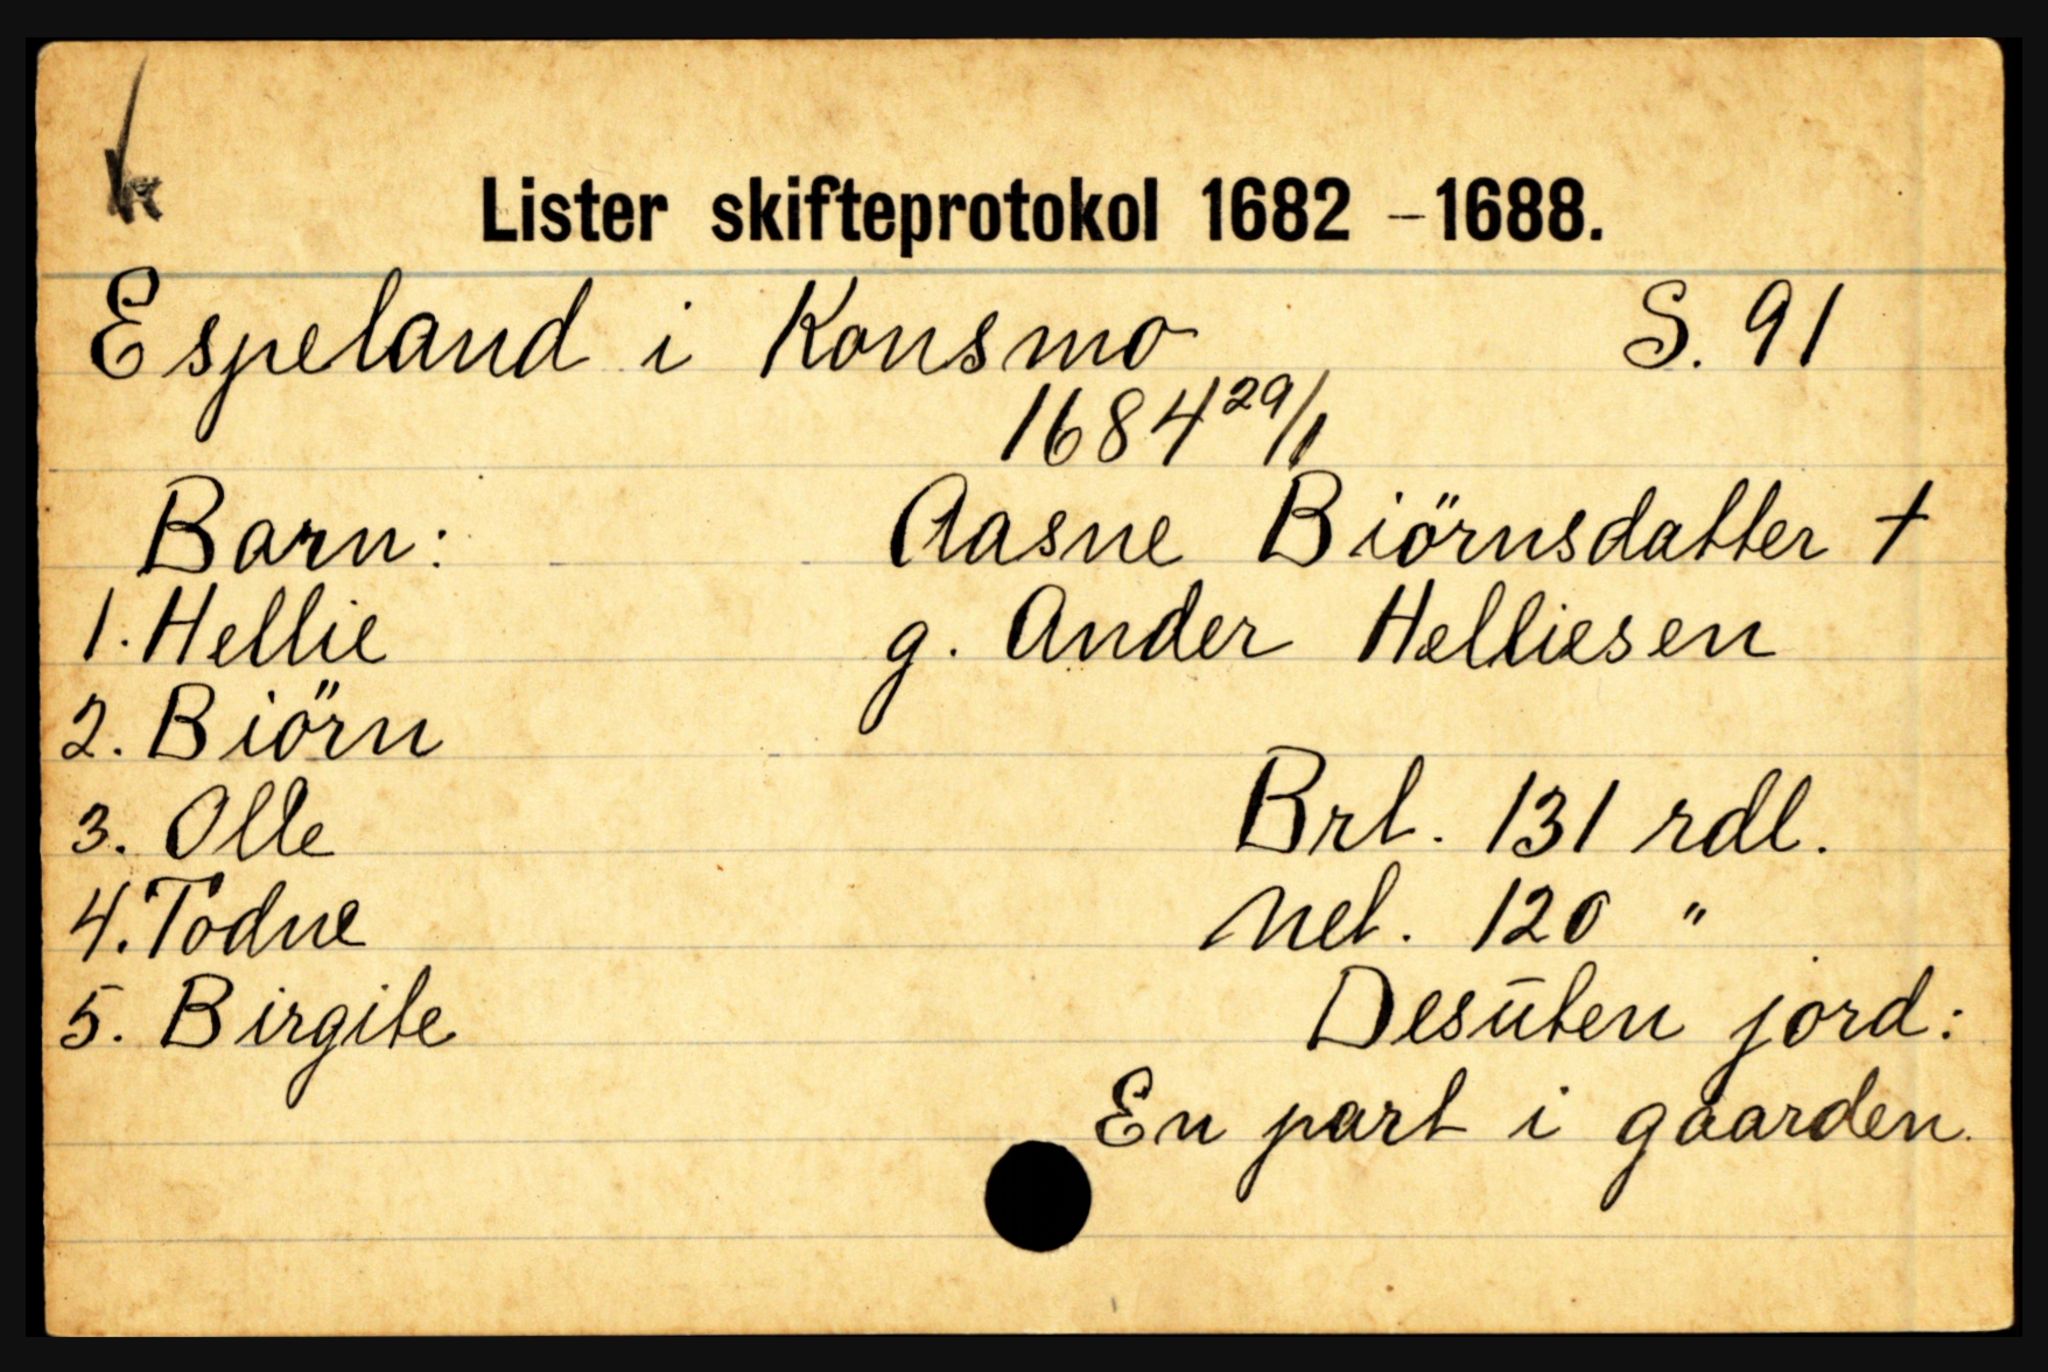 Lister skifteprotokol 1682 - 1688.
Espeland i Konsmo S. 91
1684 29/1
Barn: Aasne Biörnsdatter †
1. Hellie g. Ander Helliesen
2. Biörn
3. Olle Brt. 131 rdl.
4. Todne Net. 120 "
5. Birgite Desūten jord:
En part i gaarden.